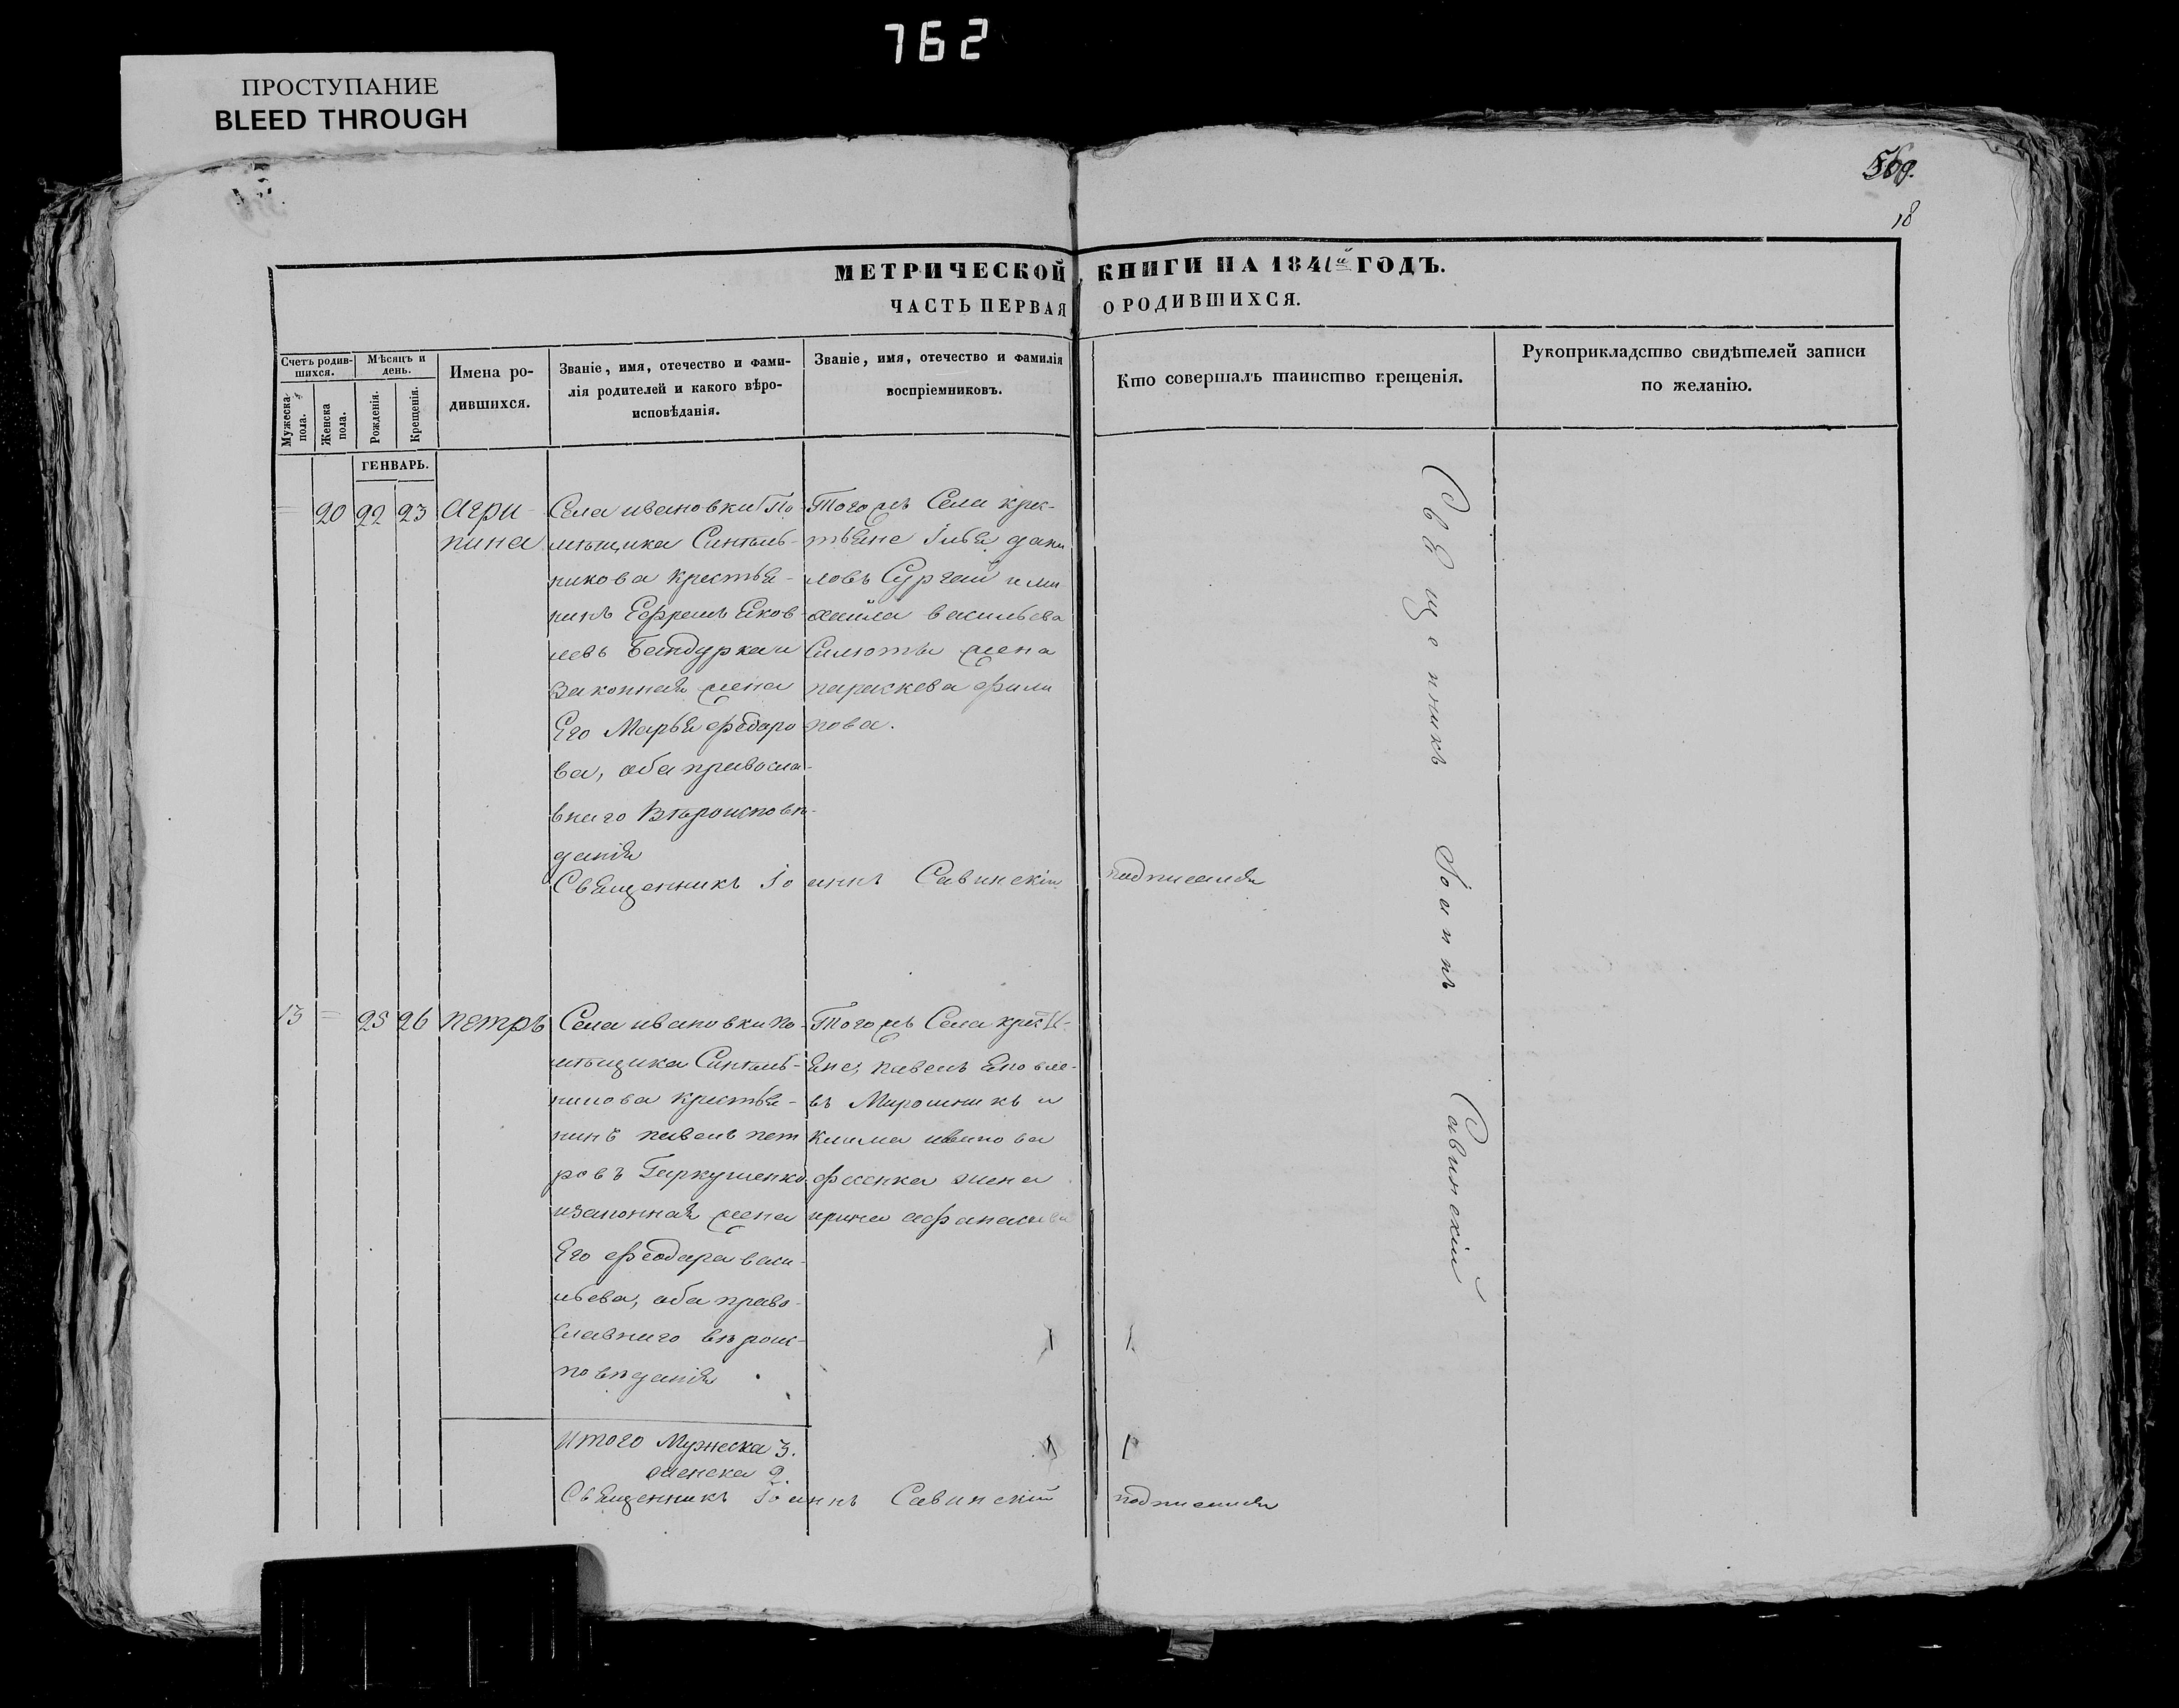 762
ПРОСТУПАНИЕ
BLEED THROUGH
18
МЕТРИЧЕСКОЙ КНИГИ НА 1841й ГОДЪ.
ЧАСТЬ ПЕРВАЯ О РОДИВШИХСЯ.
Счетъ родив-
шихся.
Мужеска
пола.
Женска
пола.
Мѣсяцъ и
день.
Рожденія.
Крещенія.
Имена ро-
дившихся.
Званіе, имя, отечество и фами-
лія родителей и какого вѣро-
исповѣданія.
Званіе, имя, отечество и фамилія
воспріемниковъ.
Кто совершалъ таинство крещенія.
Рукоприкладство свидѣтелей записи
по желанію.
ГЕНВАРЬ.
= 20 22 23
Агри-
пина
Села ивановки По-
мѣщика Синтель-
никова крестья-
нинъ Ефремъ Яков-
левъ Бандурка и
законная жена
Его Марья федоро-
ва, оба правосла-
внаго Вѣроисповѣ-
данія
Тогожъ Села крес-
тьяне Iлья дани
ловъ Сургай и ми
хайла васильева
жена
параскева фили
пова.
Священникъ Iоаннъ Савинскій подписался
13 = 25 26
петръ
Села ивановки по-
мѣщика Синтель-
никова крестья-
нинъ павелъ пет
ровъ Гаркушенко
изаконная жена
Его феодара васи-
льева, оба право-
славнаго вѣроис-
повѣданія
Тогожъ Села крестья-
яне, павелъ
въ Мирошникъ и
иванова
жена
ирина афанасиева
Итого Мужеска 3.
женска 2.
Священникъ Iоаннъ Савинскій подписался
Священникъ Iоаннъ Савинскій